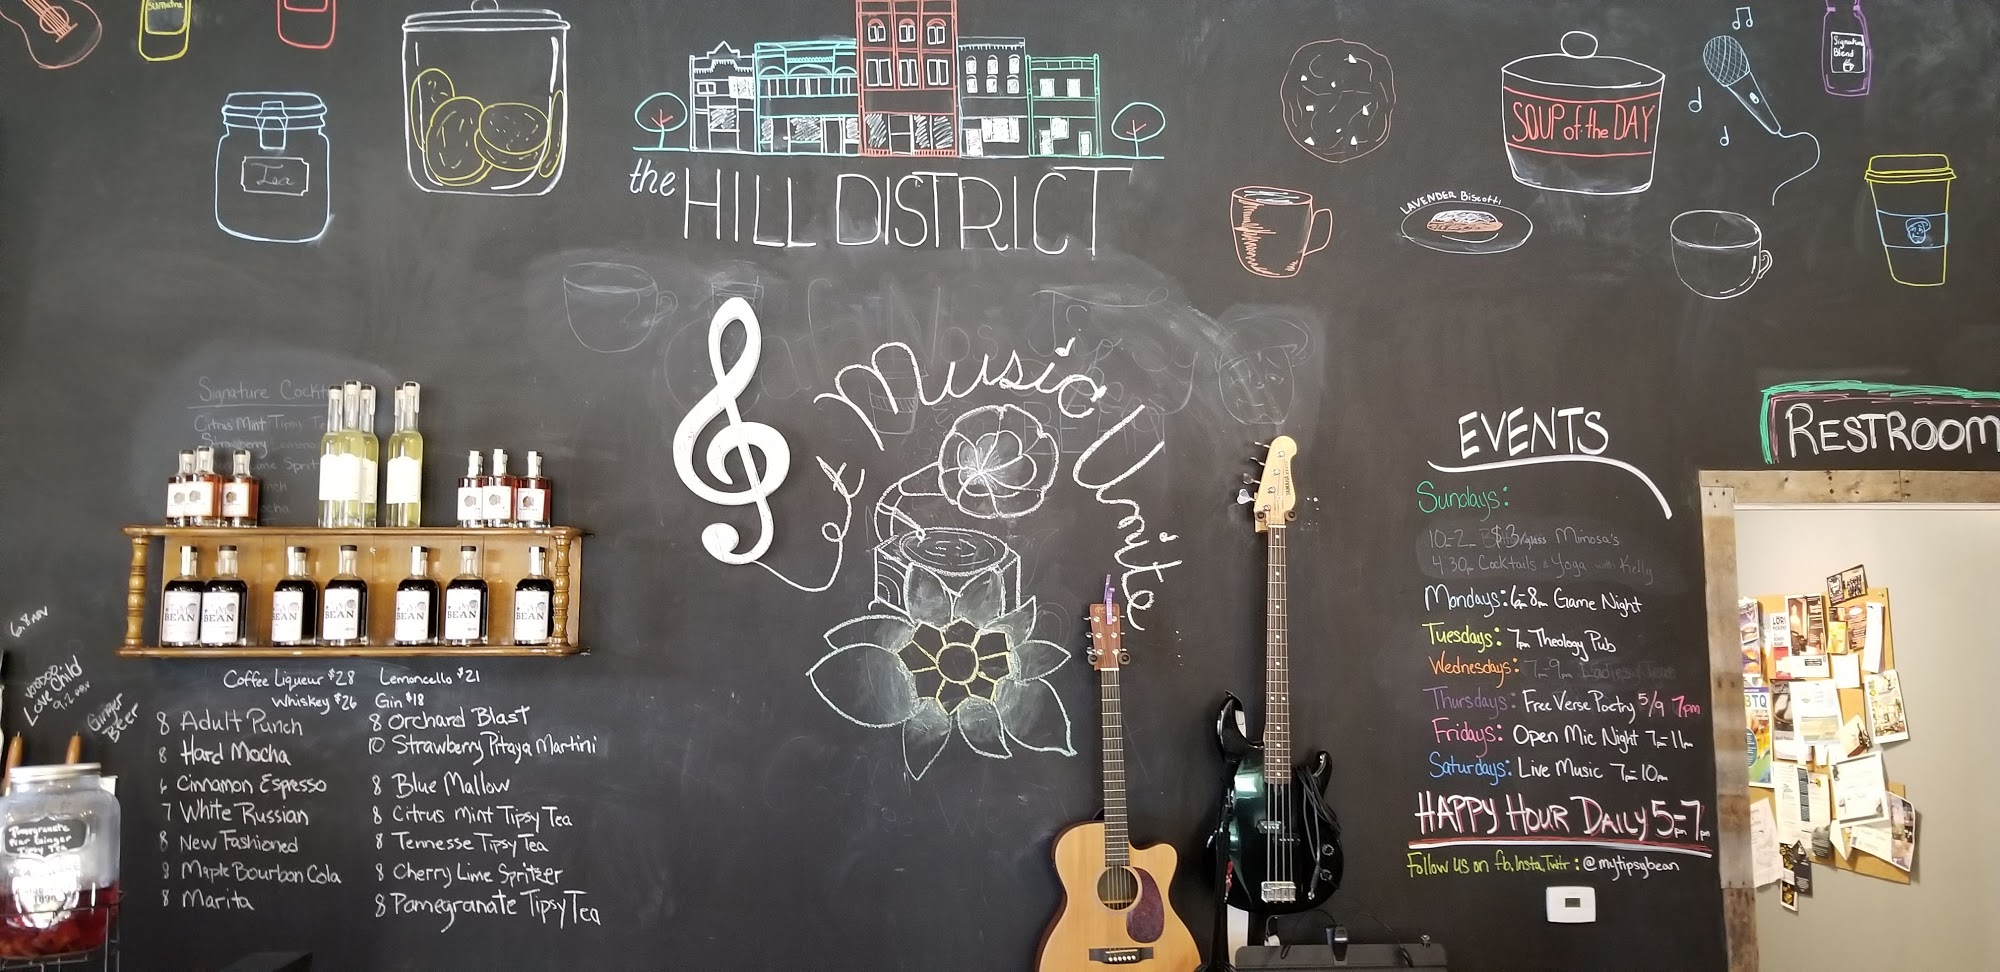 Sumatra
Tea
the HILL DISTRICT
SOUP of the DAY
LAVENDER Biscotti
Signature
Blend
Let Music Unite
Signature
Citrus Mint Tipsy
Strawberry
BEAN
BEAN
BEAN
BEAN
BEAN
BEAN
BEAN
Coffee Liqueur $28
Lemoncello $21
Whiskey $26
Gin $18
8 Adult Punch
8 Hard Mocha
Cinnamon Espresso
7 White Russian
8 New Fashioned
Maple Bourbon Cola
8 Marita
8 Orchard Blast
10 Strawberry Pitaya Martini
8 Blue Mallow
8 Citrus Mint Tipsy Tea
8 Tennesse Tipsy Tea
8 Cherry Lime Spritzer
8 Pomegranate Tipsy Tea
VOODOO
Love Child
Ginger
Beer
Pomegranate
Pear Ginger
Tipsy Tea
EVENTS
Sundays:
10-2 $3/glass Mimosa's
4:30p Cocktails & Yoga with Kelly
Mondays: 6pm-8pm Game Night
Tuesdays: 7pm Theology Pub
Wednesdays: 7-9pm
Thursdays: Free Verse Poetry 5/9 7pm
Fridays: Open Mic Night 7pm-11pm
Saturdays: Live Music 7pm-10pm
HAPPY HOUR DAILY 5pm-7pm
Follow us on fb, Insta, Twttr: @mytipsybean
RESTROOM